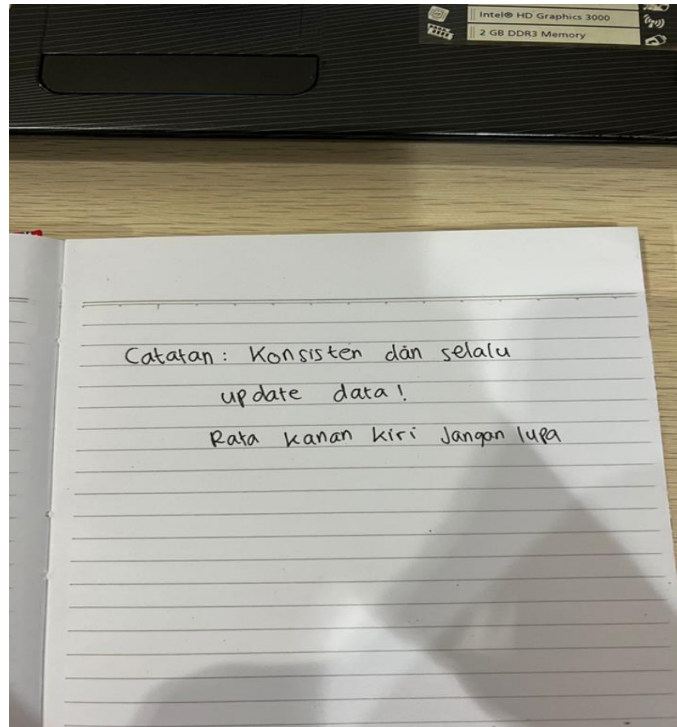 Intel® HD Graphics 3000
2 GB DDR3 Memory
Catatan : Konsisten dan selalu
update data!
Rata kanan kiri Jangan lupa